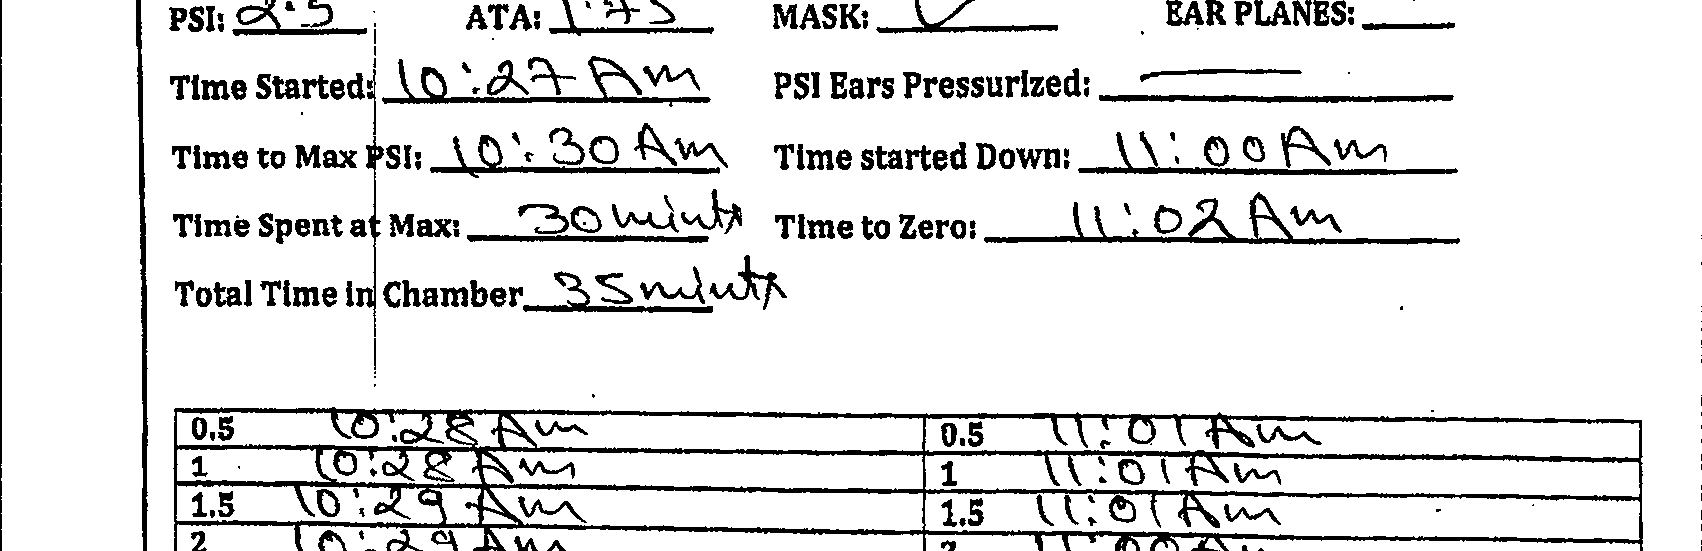 PSI: 2.5 ATA: 1.75 MASK: ✓ EAR PLANES:
Time Started: 10:27 Am PSI Ears Pressurized: —
Time to Max PSI: 10:30 Am Time started Down: 11:00 Am
Time Spent at Max: 30 minuts Time to Zero: 11:02 Am
Total Time in Chamber 35 minuts
0.5 10:28 Am 0.5 11:01 Am
1 10:28 Am 1 11:01 Am
1.5 10:29 Am 1.5 11:01 Am
2 10:29 Am 2 11:00 Am